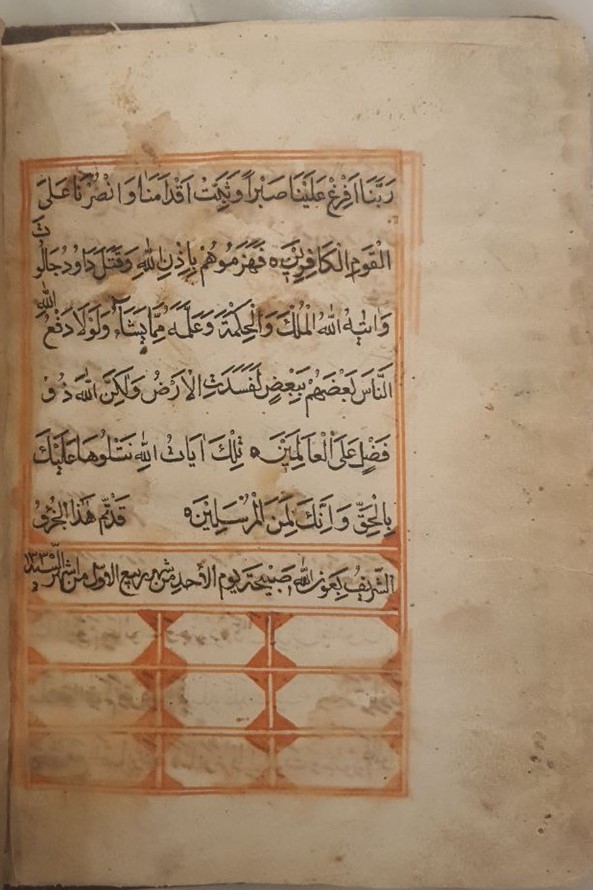 رَبَّنَا اَفْرِغْ عَلَيْنَا صَبْرًا وَثَبِّتْ اَقْدَامَنَا وَانْصُرْنَا عَلَى
الْقَوْمِ الْكَافِرِينَ ه فَهَزَمُوهُمْ بِاِذْنِ اللهِ وَقَتَلَ دَاوُدُ جَالُوتَ
وَاٰتٰيهُ اللهُ الْمُلْكَ وَالْحِكْمَةَ وَعَلَّمَهُ مِمَّا يَشَاءُ وَلَوْلَا دَفْعُ اللهِ
النَّاسَ بَعْضَهُمْ بِبَعْضٍ لَفَسَدَتِ الْاَرْضُ وَلٰكِنَّ اللهَ ذُو
فَضْلٍ عَلَى الْعَالَمِينَ ه تِلْكَ اٰيَاتُ اللهِ نَتْلُوهَا عَلَيْكَ
بِالْحَقِّ وَاِنَّكَ لَمِنَ الْمُرْسَلِينَ ه قَدْ تَمَّ هٰذَا الْجُزْءُ
الشَّرِيفُ بِعَوْنِ اللهِ صَبِيحَةِ يَوْمِ الْأَحَدِ مِنْ شَهْرِ رَبِيعِ الْاَوَّلِ مِنْ